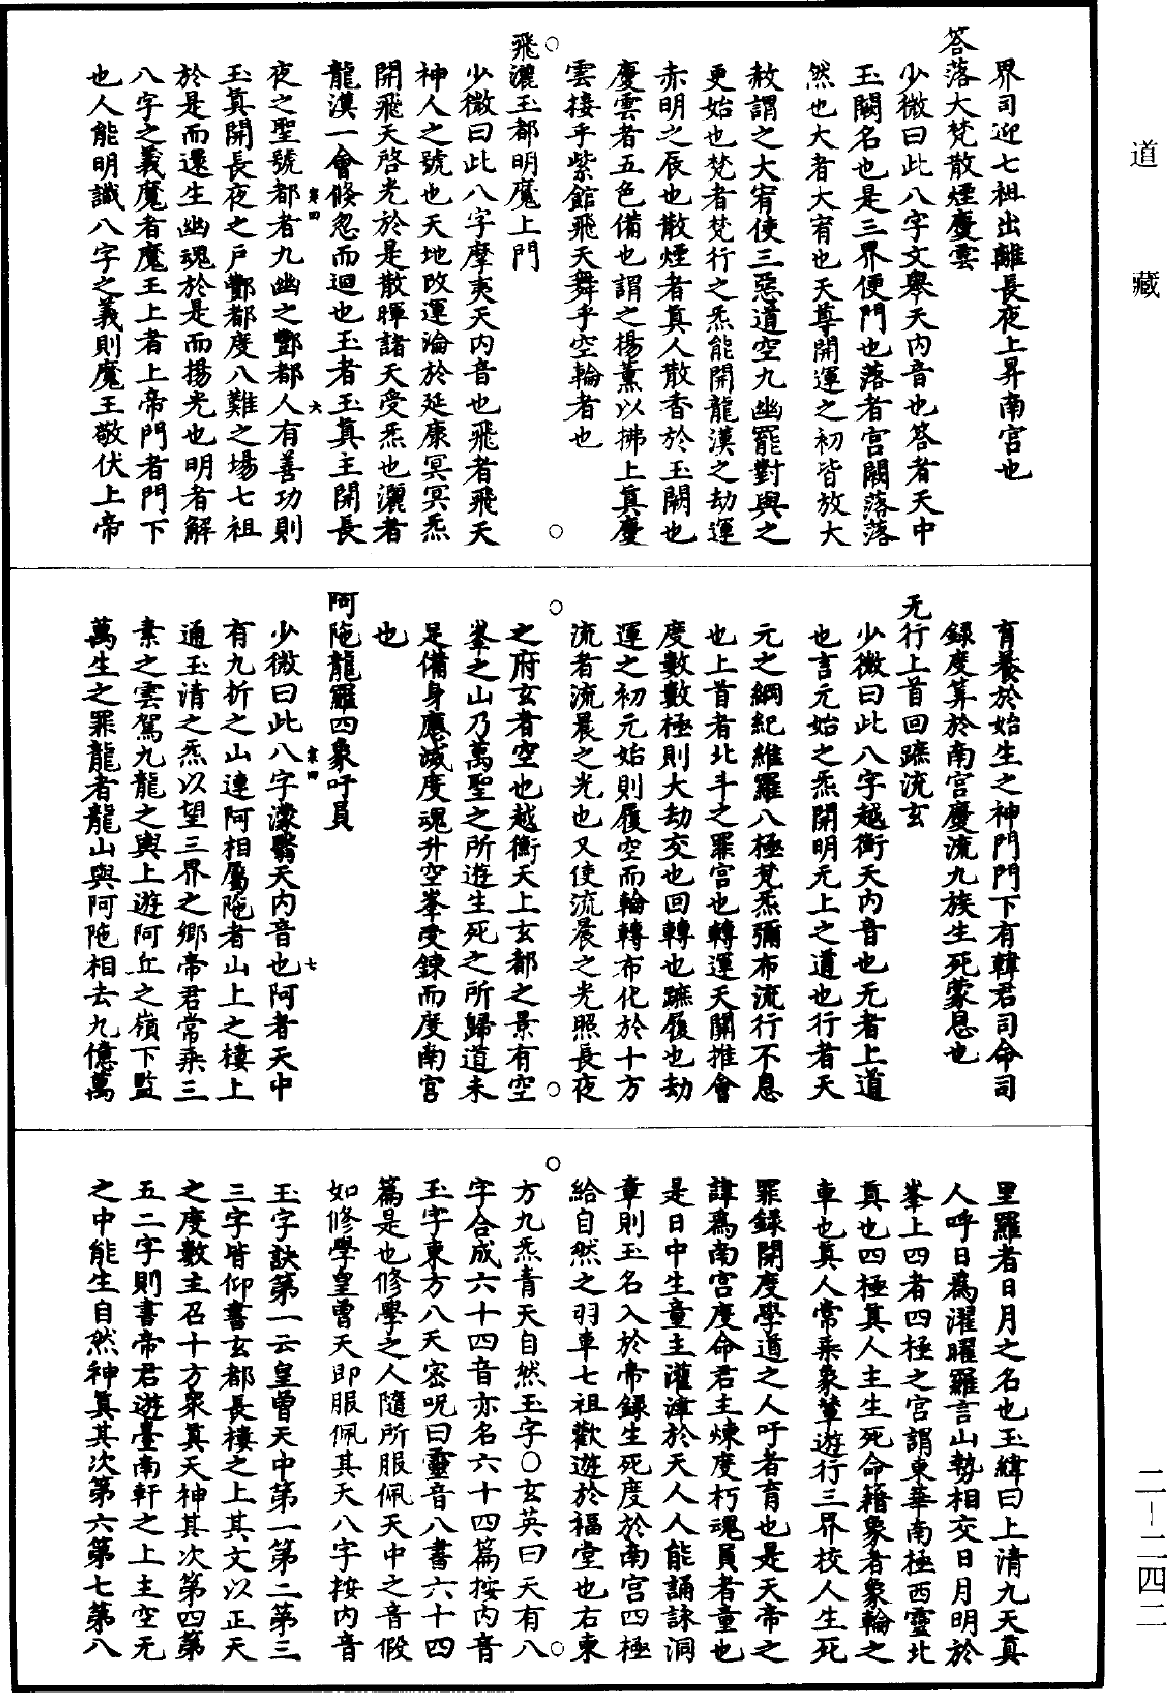 界司迎七祖出離長夜上昇南宮也
答落大梵散煙慶雲
少微曰此八字文舉天内音也答者天中
玉闕名也是三界便門也落者宮闕落落
然也大者大宥也天尊開運之初皆放大
赦謂之大宥使三惡道空九幽罷對與之
更始也梵者梵行之炁能開龍漢之劫運
赤明之辰也散煙者真人散香於玉闕也
慶雲者五色備也謂之揚薫以拂上真慶
雲接乎紫館飛天舞乎空輪者也
飛灑玉都明魔上門
少微曰此八字摩夷天内音也飛者飛天
神人之號也天地改運淪於延康冥冥炁
開飛天啓光於是散暉諸天受炁也灑者
龍漢一會倏忽而迴也玉者玉真主開長
章四 六
夜之聖號都者九幽之酆都人有善功則
玉真開長夜之戶酆都度八難之場七祖
於是而還生幽魂於是而揚光也明者解
八字之義魔者魔王上者上帝門者門下
也人能明識八字之義則魔王敬伏上帝
育養於始生之神門門下有韓君司命司
録度筭於南宮慶流九族生死蒙恩也
无行上首回蹠流玄
少微曰此八字越衡天内音也无者上道
也言元始之炁開明无上之道也行者天
元之綱紀維羅八極梵炁彌布流行不息
也上首者北斗之羅宮也轉運天關推會
度數數極則大劫交也回轉也蹠履也劫
運之初元始則履空而輪轉布化於十方
流者流晨之光也又使流晨之光照長夜
之府玄者空也越衡天上玄都之景有空
峯之山乃萬聖之所遊生死之所歸道未
足備身應滅度魂升空峯受鍊而度南宮
也
阿陁龍羅四象吁員
章四 七
少微曰此八字濛翳天内音也阿者天中
有九折之山連阿相屬陁者山上之棲上
通玉清之炁以望三界之鄉帝君常乘三
素之雲駕九龍之輿上遊阿丘之嶺下監
萬生之罪龍者龍山與阿陁相去九億萬
里羅者日月之名也玉緯曰上清九天真
人呼日爲濯曜羅言山勢相交日月明於
峯上四者四極之宮謂東華南極西靈北
真也四極真人主生死命籍象者象輪之
車也真人常乘象輦遊行三界校人生死
罪録開度學道之人吁者育也是天帝之
諱爲南宮度命君主煉度朽魂員者童也
是日中生童主灌津於天人人能誦詠洞
章則玉名入於帝録生死度於南宮四極
給自然之羽車七祖歡遊於福堂也右東
方九炁青天自然玉字○玄英曰天有八
字合成六十四音亦名六十四篇按内音
玉字東方八天密呪曰靈音八書六十四
篇是也修學之人隨所服佩天中之音假
如修學皇曾天即服佩其天八字按内音
玉字訣第一云皇曾天中第一第二第三
三字皆仰書玄都長棲之上其文以正天
之度數主召十方衆真天神其次第四第
五二字則書帝君遊臺南軒之上主空无
之中能生自然神真其次第六第七第八
道藏
二－二四二